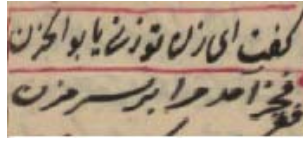 گفت ای زن تو زنی یا بوالحزن
فقر فخر آمد مرا بر سر مزن